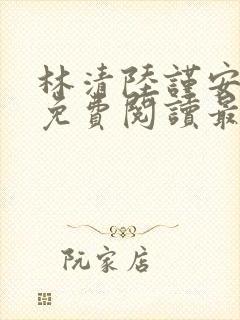 林清陸謹安
免費閱讀最
阮家店